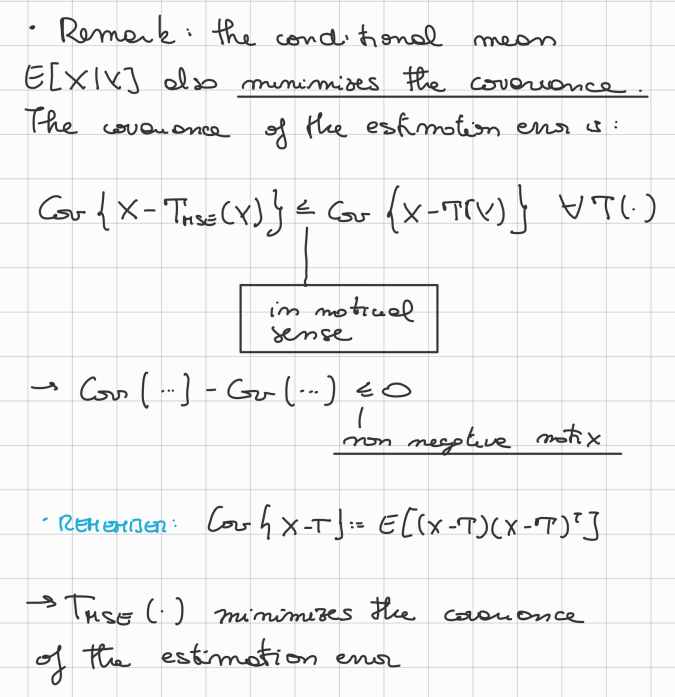 · Remark: the conditional mean
E[X|Y] also minimizes the covariance.
The covariance of the estimation error is:
Cov{X-T_MSE(Y)} ≤ Cov{X-T(Y)} ∀T(·)
in matricial
sense
→ Cov(...) - Cov(...) ≤ 0
non negative matrix
· REMEMBER: Cov{X-T}:= E[(X-T)(X-T)^T]
→ T_MSE(·) minimizes the covariance
of the estimation error